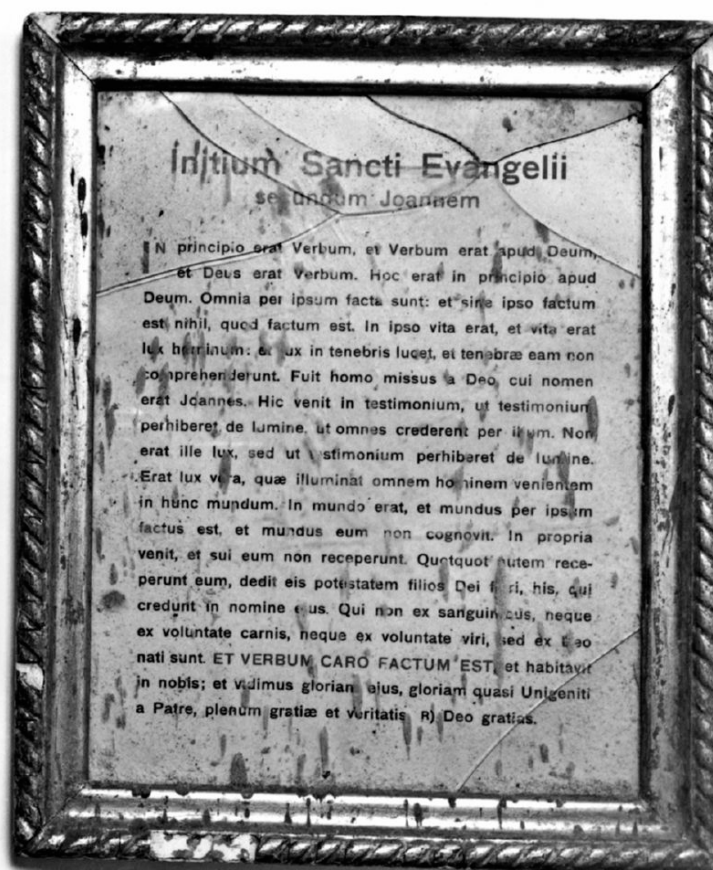 Initium Sancti Evangelii
secundum Joannem
IN principio erat Verbum, et Verbum erat apud Deum,
et Deus erat Verbum. Hoc erat in principio apud
Deum. Omnia per ipsum facta sunt: et sine ipso factum
est nihil, quod factum est. In ipso vita erat, et vita erat
lux hominum: et lux in tenebris lucet, et tenebræ eam non
comprehenderunt. Fuit homo missus a Deo, cui nomen
erat Joannes. Hic venit in testimonium, ut testimonium
perhiberet de lumine, ut omnes crederent per illum. Non
erat ille lux, sed ut testimonium perhiberet de lumine.
Erat lux vera, quæ illuminat omnem hominem venientem
in hunc mundum. In mundo erat, et mundus per ipsum
factus est, et mundus eum non cognovit. In propria
venit, et sui eum non receperunt. Quotquot autem rece-
perunt eum, dedit eis potestatem filios Dei fieri, his, qui
credunt in nomine ejus. Qui non ex sanguinibus, neque
ex voluntate carnis, neque ex voluntate viri, sed ex Deo
nati sunt. ET VERBUM CARO FACTUM EST, et habitavit
in nobis; et vidimus gloriam ejus, gloriam quasi Unigeniti
a Patre, plenum gratiæ et veritatis. R) Deo gratias.